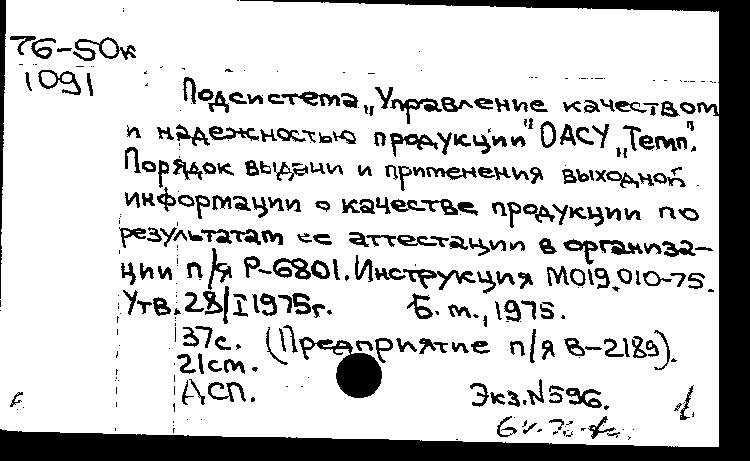 76-50к
1091
Подсистема „Управление качеством
и надежностью продукции" ОАСУ „Темп".
Порядок выдачи и применения выходной
информации о качестве продукции по
результатам ее аттестации в организа-
ции п/я Р-6801. Инструкция М019.010-75.
Утв. 28/I 1975г. Б.м., 1975.
37с. (Предприятие п/я В-2189).
21см.
ДСП. Экз.N596.